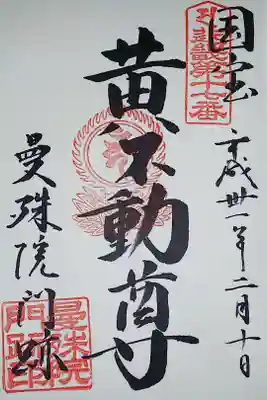 国宝
平成卅一年二月十日
近畿第十七番
黄不動尊
曼殊院門跡
曼殊院
門跡印